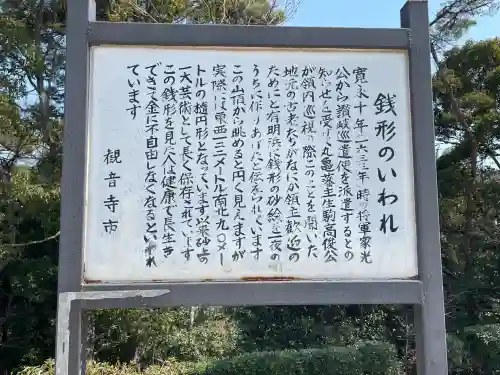 銭形のいわれ
寛永十年(一六三三年)時の将軍家光
公から讃岐巡遣使を派遣するとの
知らせを受けた丸亀藩主生駒高俊公
が領内巡視の際このことを聞いた
地元の古老たちがなにか領主歓迎の
ためにと有明浜に銭形の砂絵を一夜の
うちに作りあげたと伝えられています
この山頂から眺めると円く見えますが
実際は東西一二二メートル南北九〇メー
トルの楕円形となっています以来砂上の
一大芸術として長く保存されています
この銭形を見た人は健康で長生き
できて金に不自由しなくなるといわれ
ています
観音寺市